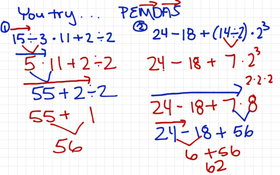 You try... PEMDAS
① 15÷3·11+2÷2
5·11+2÷2
55+2÷2
55+1
56
② 24-18+(14÷2)·2³
24-18+7·2³
2·2·2
24-18+7·8
24-18+56
6+56
62